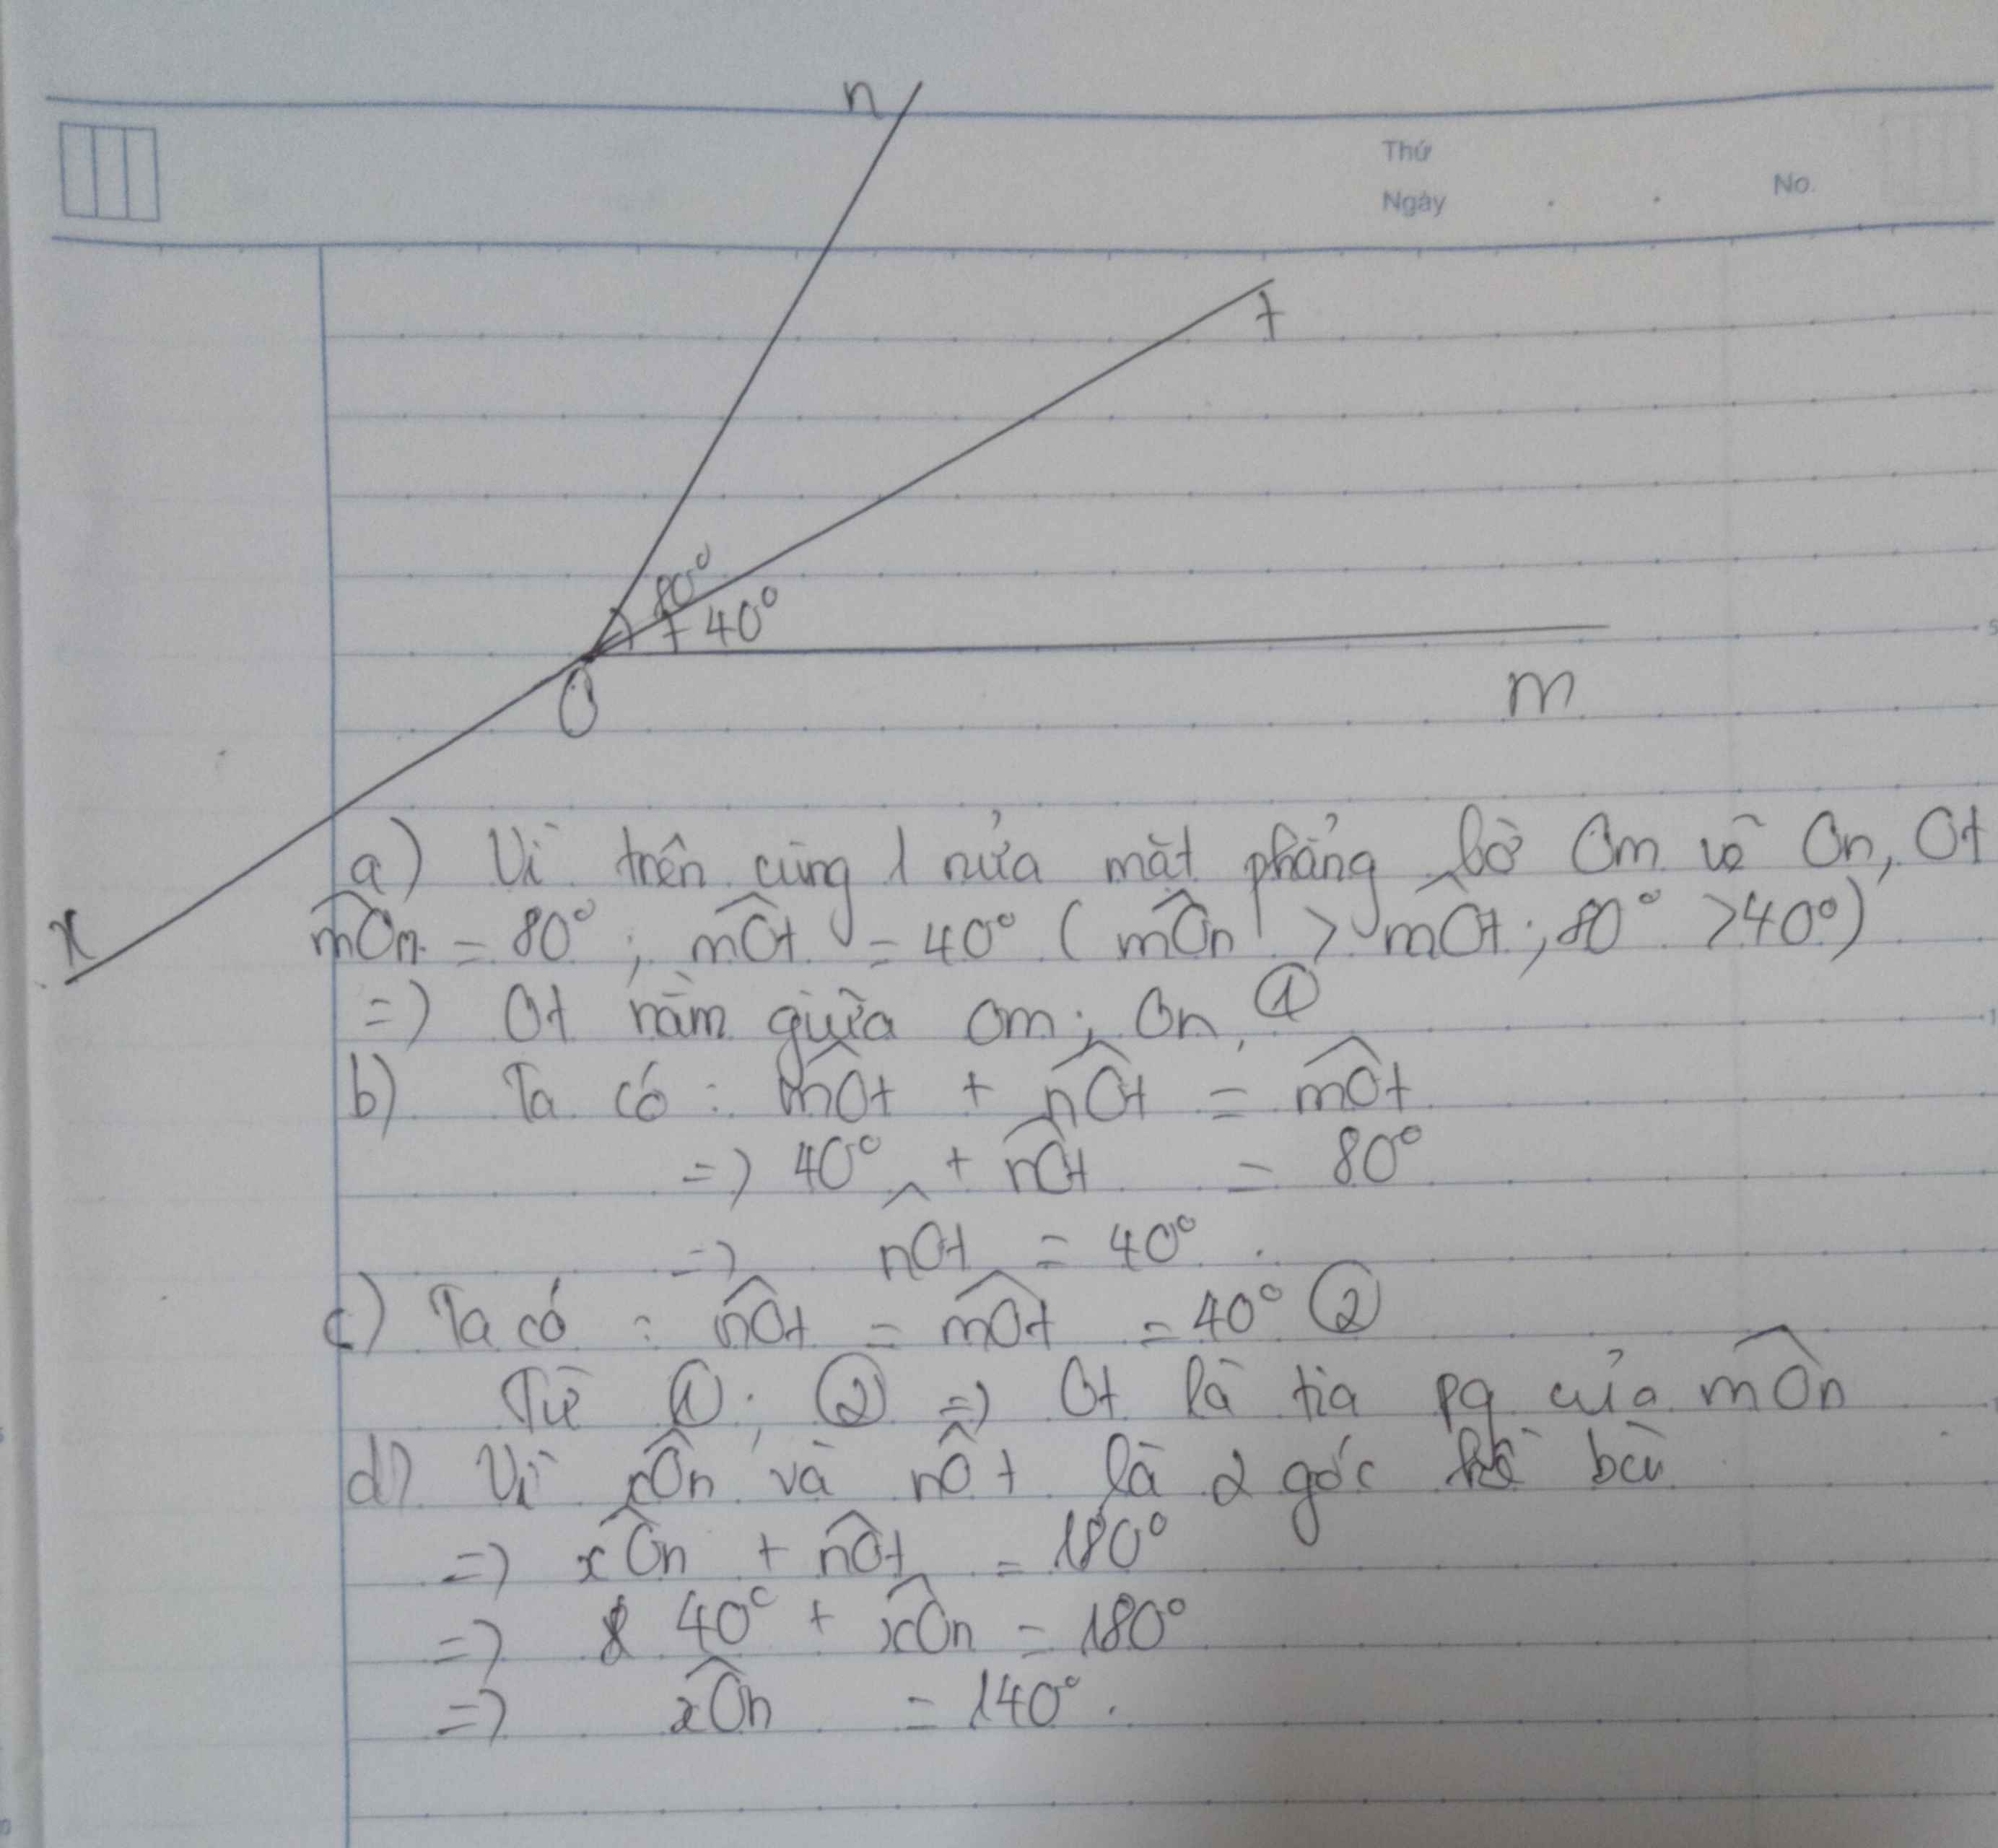 n
Thứ
Ngày
No.
t
80°
40°
O
m
x
5
a) Vì trên cùng 1 nửa mặt phẳng bờ Om vẽ On, Ot
mOn = 80° ; mOt = 40° ( mOn > mOt ; 80° > 40°)
=) Ot nằm giữa Om ; On. ①
b) Ta có : mOt + nOt = mOt
=) 40° + nOt = 80°
=) nOt = 40° .
c) Ta có : nOt = mOt = 40° ②
Từ ① ; ② =) Ot là tia pg của mOn
d) Vì xOn và nOt là 2 góc kề bù
=) xOn + nOt = 180°
=) 40° + xOn = 180°
=) xOn = 140° .